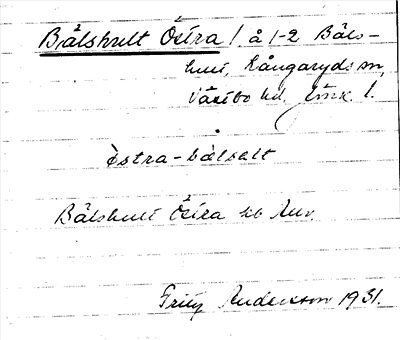 Bälshult Östra l. å 1-2 Bäls-
hult, Kångaryds sn,
Västbo hd. Jönk. l.
östra-bälsalt
Bälshult Östra kb
Andersson 1931.